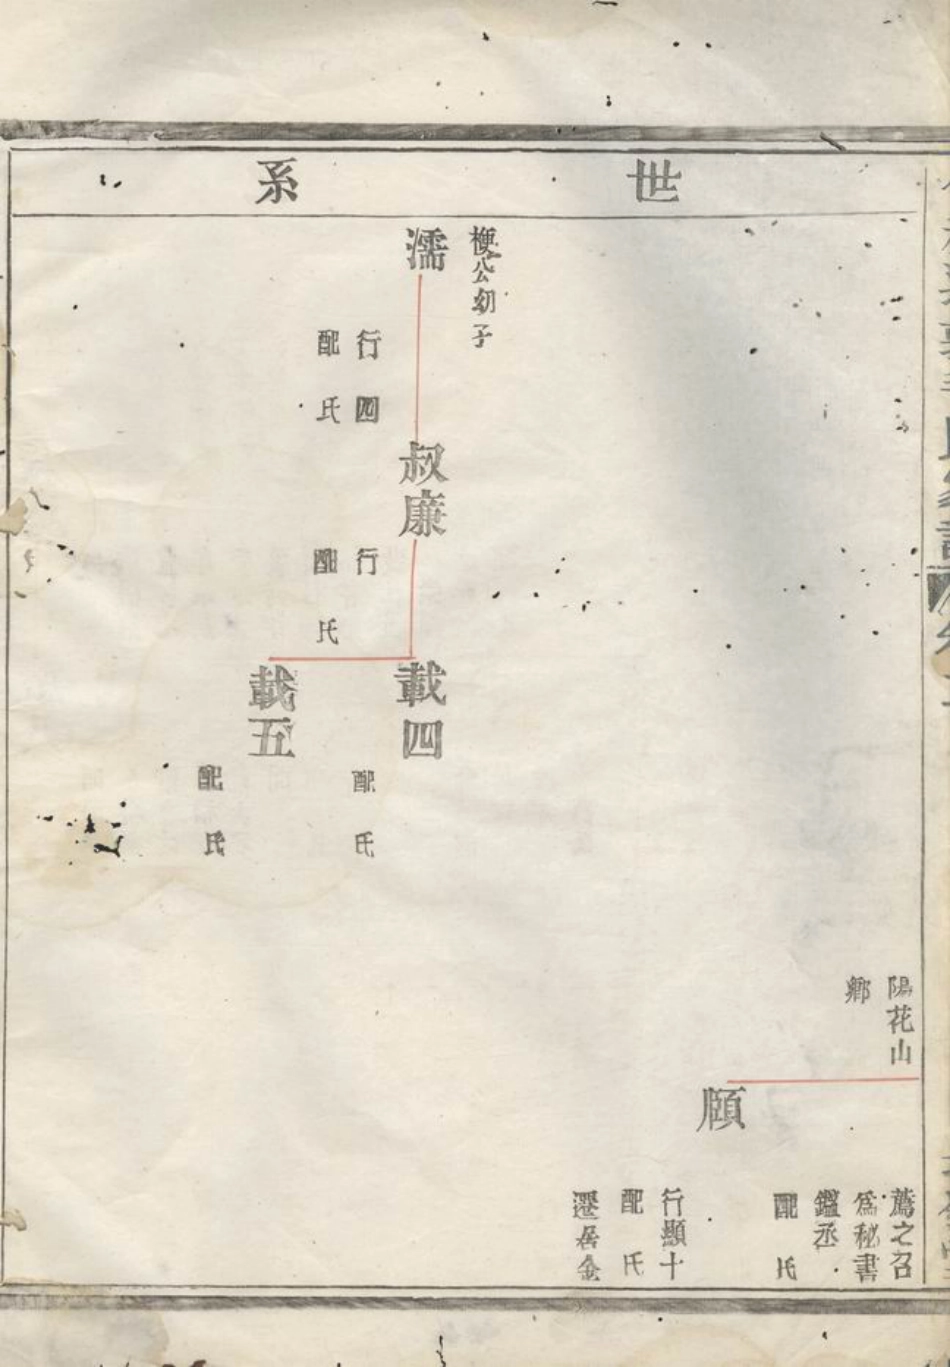 世系
陽花山
鄉
薦之召
為秘書
鑑丞
配氏
頎
行顯十
配氏
遷居金
梗公幼子
濡
行四
配氏
叔廉
行
配氏
載四
配氏
載五
配氏